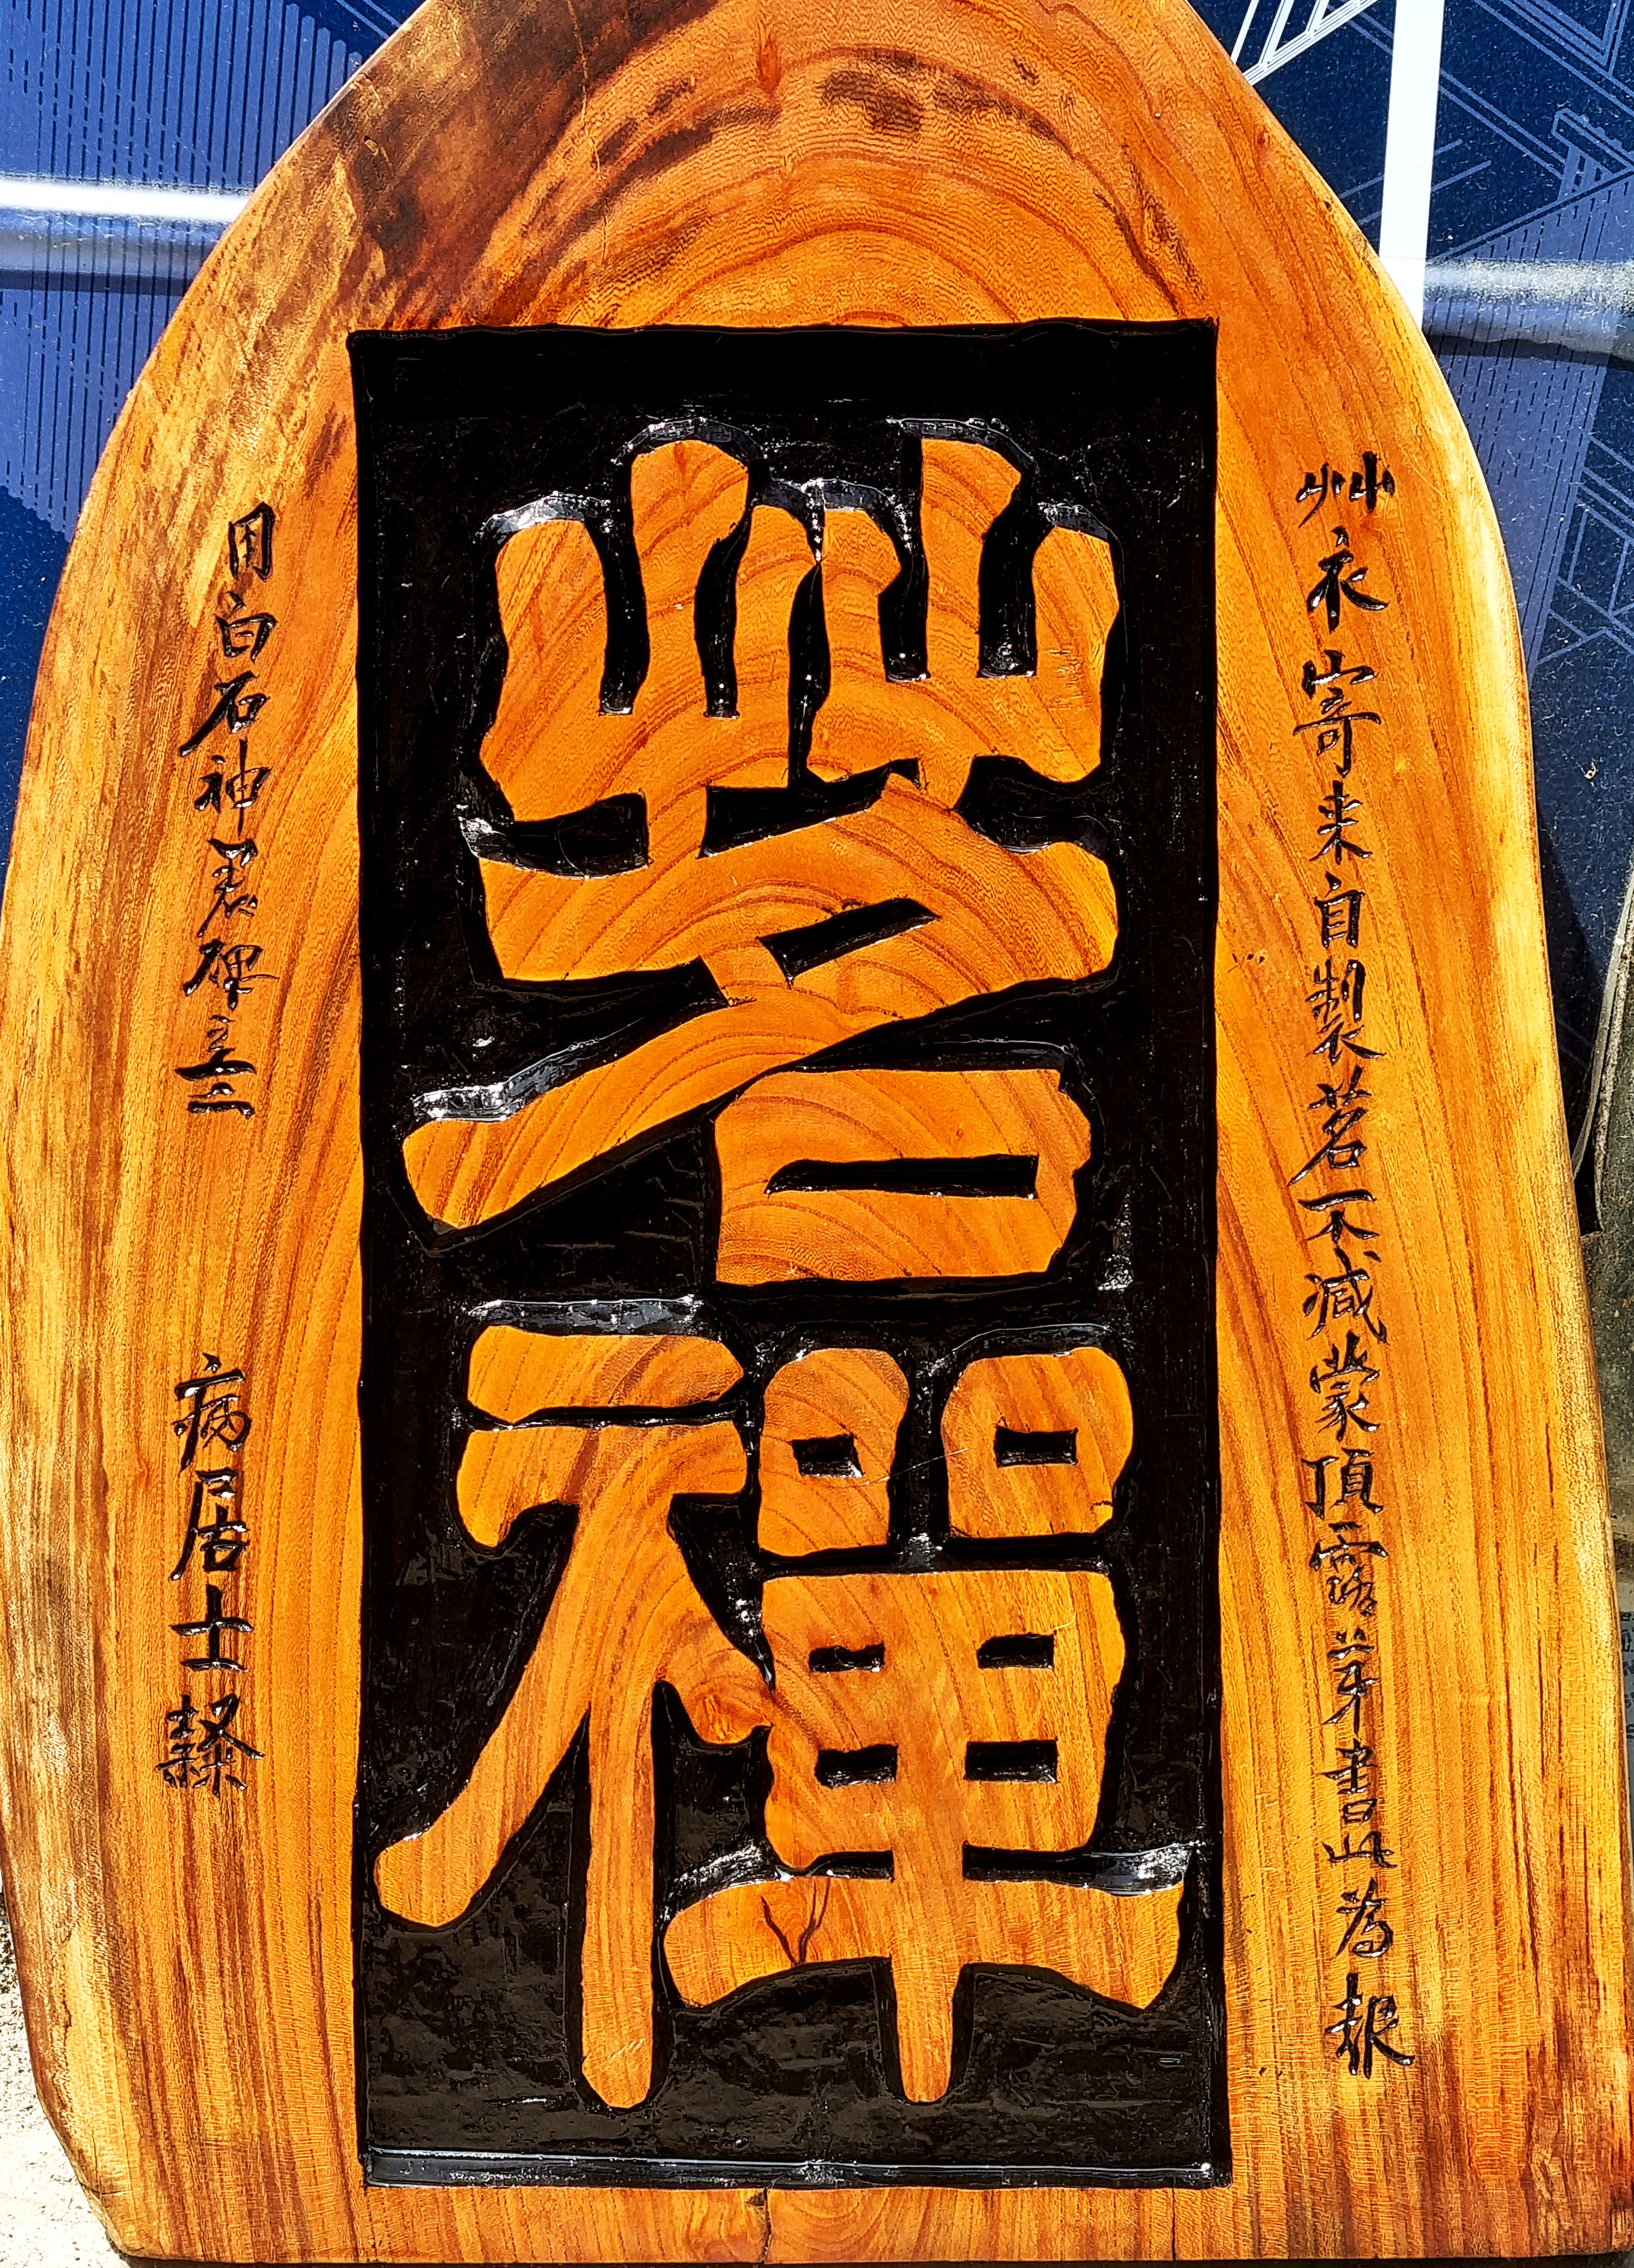 茗禪
艸衣寄來自製茗不減蒙頂露芽書此為報
用白石神君碑意 病居士隸